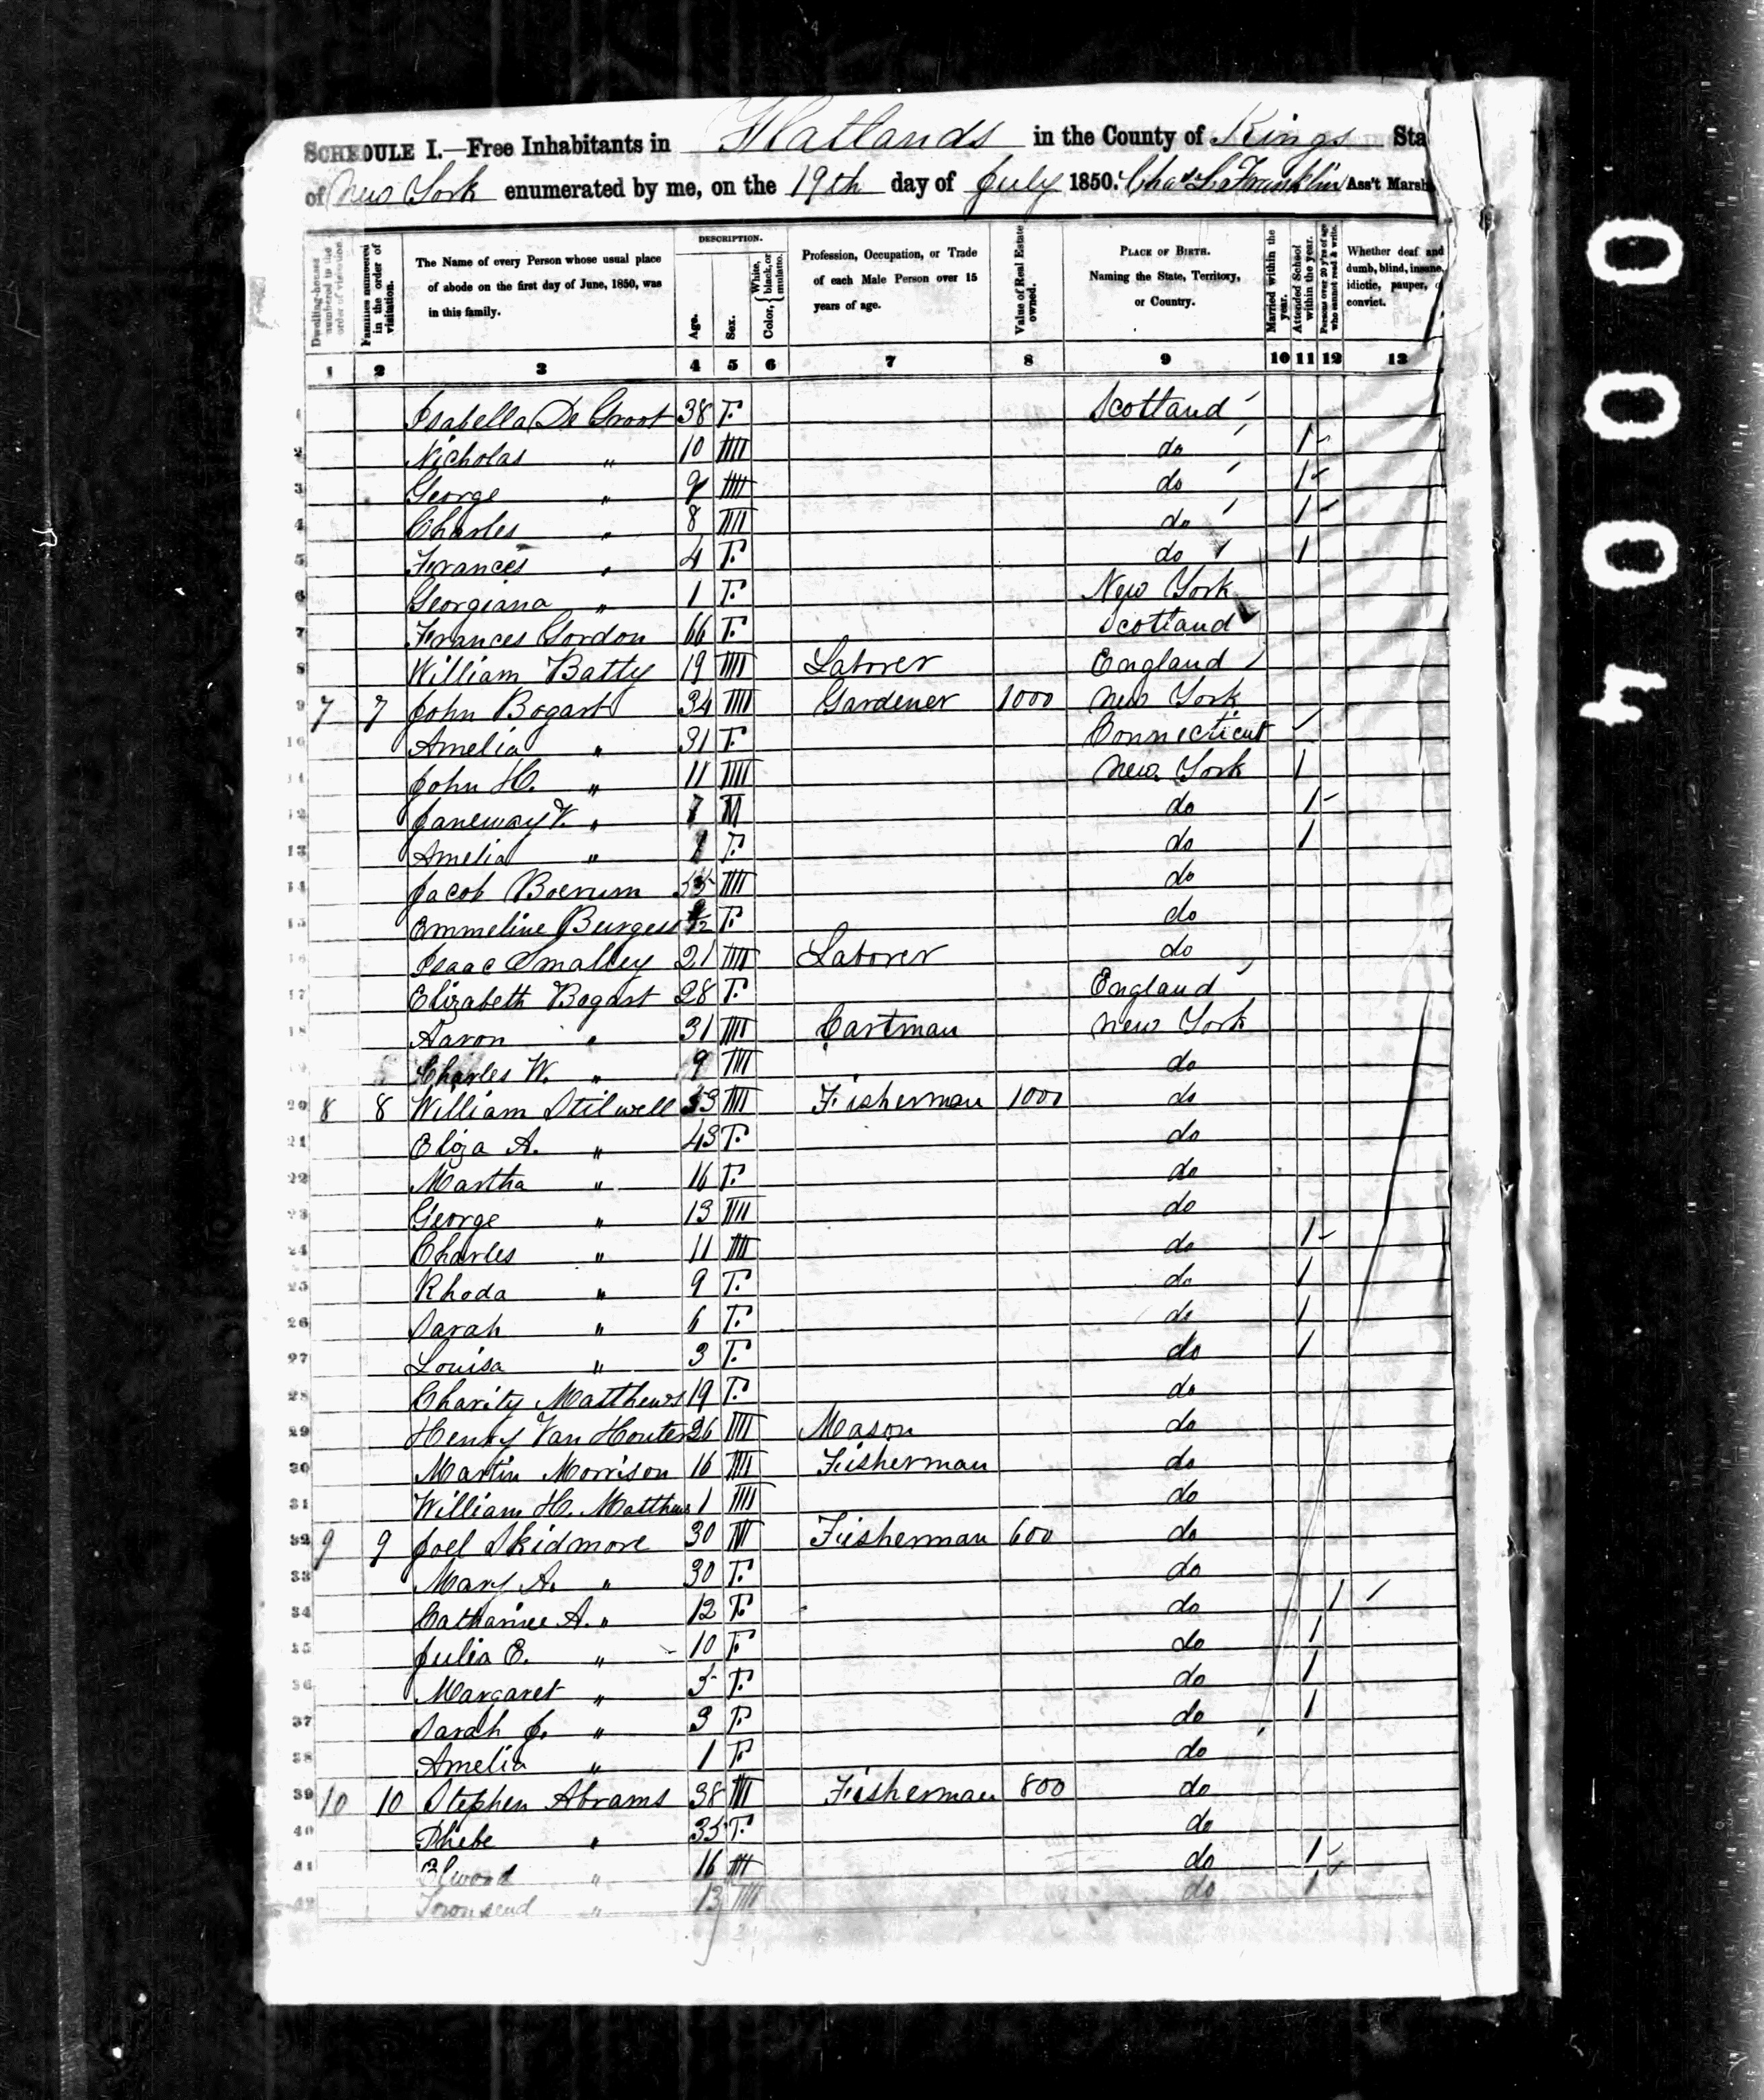 SCHEDULE I.—Free Inhabitants in Flatlands in the County of Kings Sta
of New York enumerated by me, on the 19th day of July 1850. Ass't Marsh
Dwelling-houses numbered in the order of visitation.
Families numbered in the order of visitation.
The Name of every Person whose usual place of abode on the first day of June, 1850, was in this family.
DESCRIPTION.
Age.
Sex.
Color, { White, black, or mulatto.
Profession, Occupation, or Trade of each Male Person over 15 years of age.
Value of Real Estate owned.
PLACE OF BIRTH. Naming the State, Territory, or Country.
Married within the year.
Attended School within the year.
Persons over 20 y'rs of age who cannot read & write.
Whether deaf and dumb, blind, insane, idiotic, pauper, convict.
1 2 3 4 5 6 7 8 9 10 11 12 13
1 Isabella De Groot 38 F. Scotland
2 Nicholas " 10 M do 1
3 George " 9 M do 1
4 Charles " 8 M do 1
5 Frances " 4 F. do 1
6 Georgiana " 1 F. New York
7 Frances Gordon 66 F. Scotland
8 William Batty 19 M Laborer England
9 7 7 John Bogart 34 M Gardener 1000 New York
10 Amelia " 31 F. Connecticut
11 John H. " 11 M New York 1
12 Janeway V. " 7 M do 1
13 Amelia " 1 F. do 1
14 Jacob Boerum M do
15 Emmeline Burgess F. do
16 Isaac Smalley 21 M Laborer do
17 Elizabeth Bogart 28 F. England
18 Aaron " 31 M Cartman New York
19 Charles W. " 9 M do
20 8 8 William Stilwell 53 M Fisherman 1000 do
21 Eliza A. " 43 F. do
22 Martha " 16 F. do
23 George " 13 M do
24 Charles " 11 M do 1
25 Rhoda " 9 F. do 1
26 Sarah " 6 F. do 1
27 Louisa " 3 F. do 1
28 Charity Matthews 19 F. do
29 Henry Van Houten 26 M Mason do
30 Martin Morrison 16 M Fisherman do
31 William H. Matthews 1 M do
32 9 9 Joel Skidmore 30 M Fisherman 600 do
33 Mary A. " 30 F. do
34 Catharine A. " 12 F. do 1
35 Julia E. " 10 F do 1
36 Margaret " 5 F. do 1
37 Sarah J. " 3 F. do 1
38 Amelia " 1 F do
39 10 10 Stephen Abrams 38 M Fisherman 800 do
40 Phebe " 35 F. do
41 Elwood " 16 M do 1
42 Townsend " 13 M do 1
0004